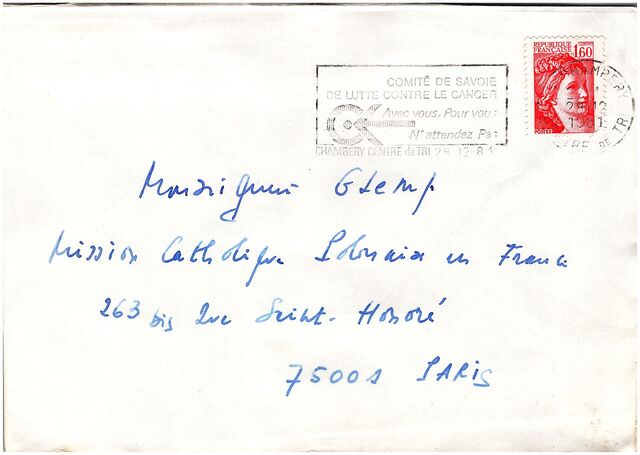 REPUBLIQUE FRANCAISE 1,60
CHAMBERY
28-12
1981
COMITÉ DE SAVOIE
DE LUTTE CONTRE LE CANCER
Avec vous, Pour vous
N'attendez Pas
CHAMBERY CENTRE de TRI 28.12.81
Monseigneur Glemp
Mission Catholique Polonaise en France
263 bis rue Saint-Honoré
75001 PARIS